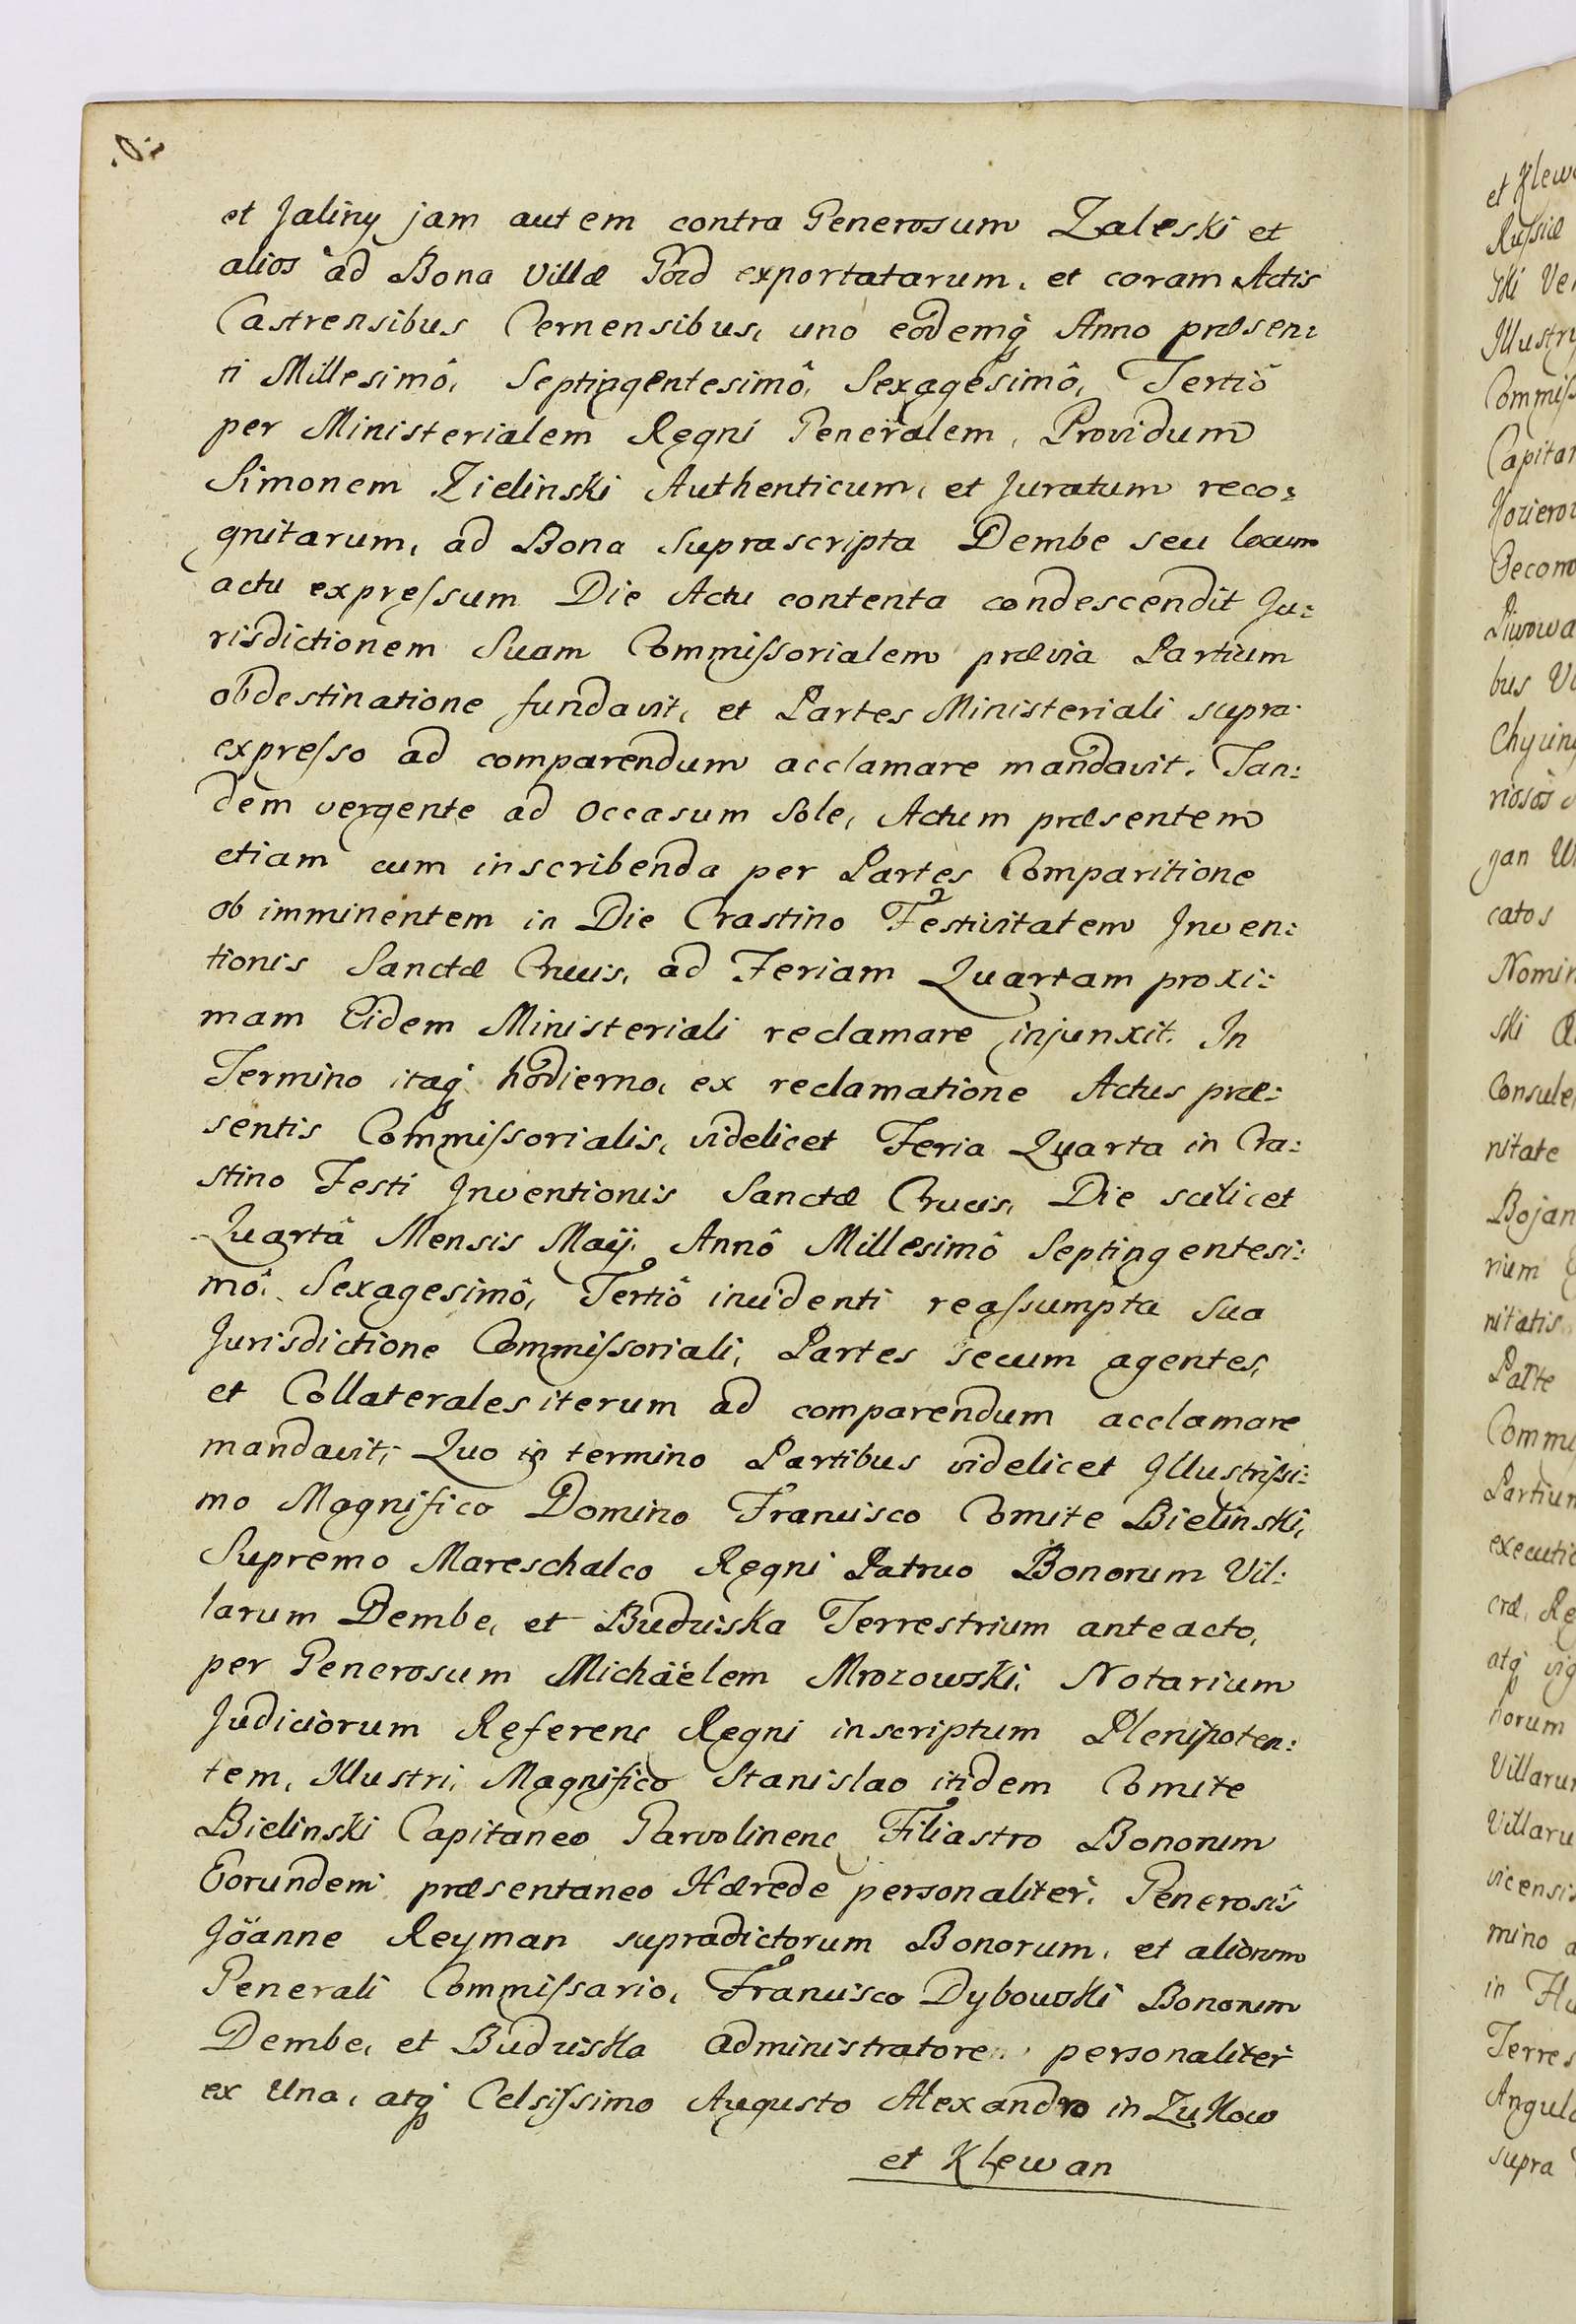 et Jaliny jam autem contra Generosum Zaleski et
alios ad Bona Villæ Gord exportatarum, et coram Actis
Castrensibus Cernensibus, uno eodemq́ Anno præsen:
ti Millesimô, Septingentesimô, Sexagesimô, Tertiô
per Ministerialem Regni Generalem, Providum
Simonem Zielinski Authenticum, et Juratum reco:
gnitarum, ad Bona Suprascripta Dembe seu locum
actu expressum Die Actu contenta condescendit Ju:
risdictionem Suam Commissorialem prævia Partium
obdestinatione fundavit, et Partes Ministeriali supra
expresso ad comparendum acclamare mandavit. Tan:
dem vergente ad Occasum Sole, Actum præsentem
etiam cum inscribenda per Partes Comparitione
ob imminentem in Die Crastino Festivitatem Inven:
tionis Sanctæ Crucis, ad Feriam Quartam proxi:
mam Eidem Ministeriali reclamare injunxit. In
Termino itaq́ hodierno, ex reclamatione Actus præ:
sentis Commissorialis, videlicet Feria Quarta in Cra:
stino Festi Inventionis Sanctæ Crucis, Die scilicet
Quartâ Mensis Maÿ. Annô Millesimô Septingentesi:
mô. Sexagesimô, Tertiô incidenti reassumpta Sua
Jurisdictione Commissoriali, Partes secum agentes,
et Collaterales iterum ad comparendum acclamare
mandavit; Quo in termino Partibus videlicet Illustrissi:
mo Magnifico Domino Francisco Comite Bielinski,
Supremo Mareschalco Regni Patruo Bonorum Vil:
larum Dembe, et Budziska Terrestrium anteacto,
per Generosum Michäelem Mrozowski, Notarium
Judiciorum Referenc Regni inscriptum Plenipoten:
tem, Illustri, Magnifico Stanislao itidem Comite
Bielinski Capitaneo Garvolinenc Filiastro Bonorum
Eorundem præsentaneo Hærede personaliter, Generosis
Jöanne Reyman supradictorum Bonorum, et aliorum
Generali Commissario, Francisco Dybowski Bonorum
Dembe, et Budziska administratore personaliter
ex Una, atq́ Celsissimo Augusto Alexandro in Zukow
et Klewan
et Klew
catos
Nomin
ski
Consule
nitate
Bojan
nitatis
Parte
Partiun
horum
Villaru
Villaru
mino
Terres
Angul
supra